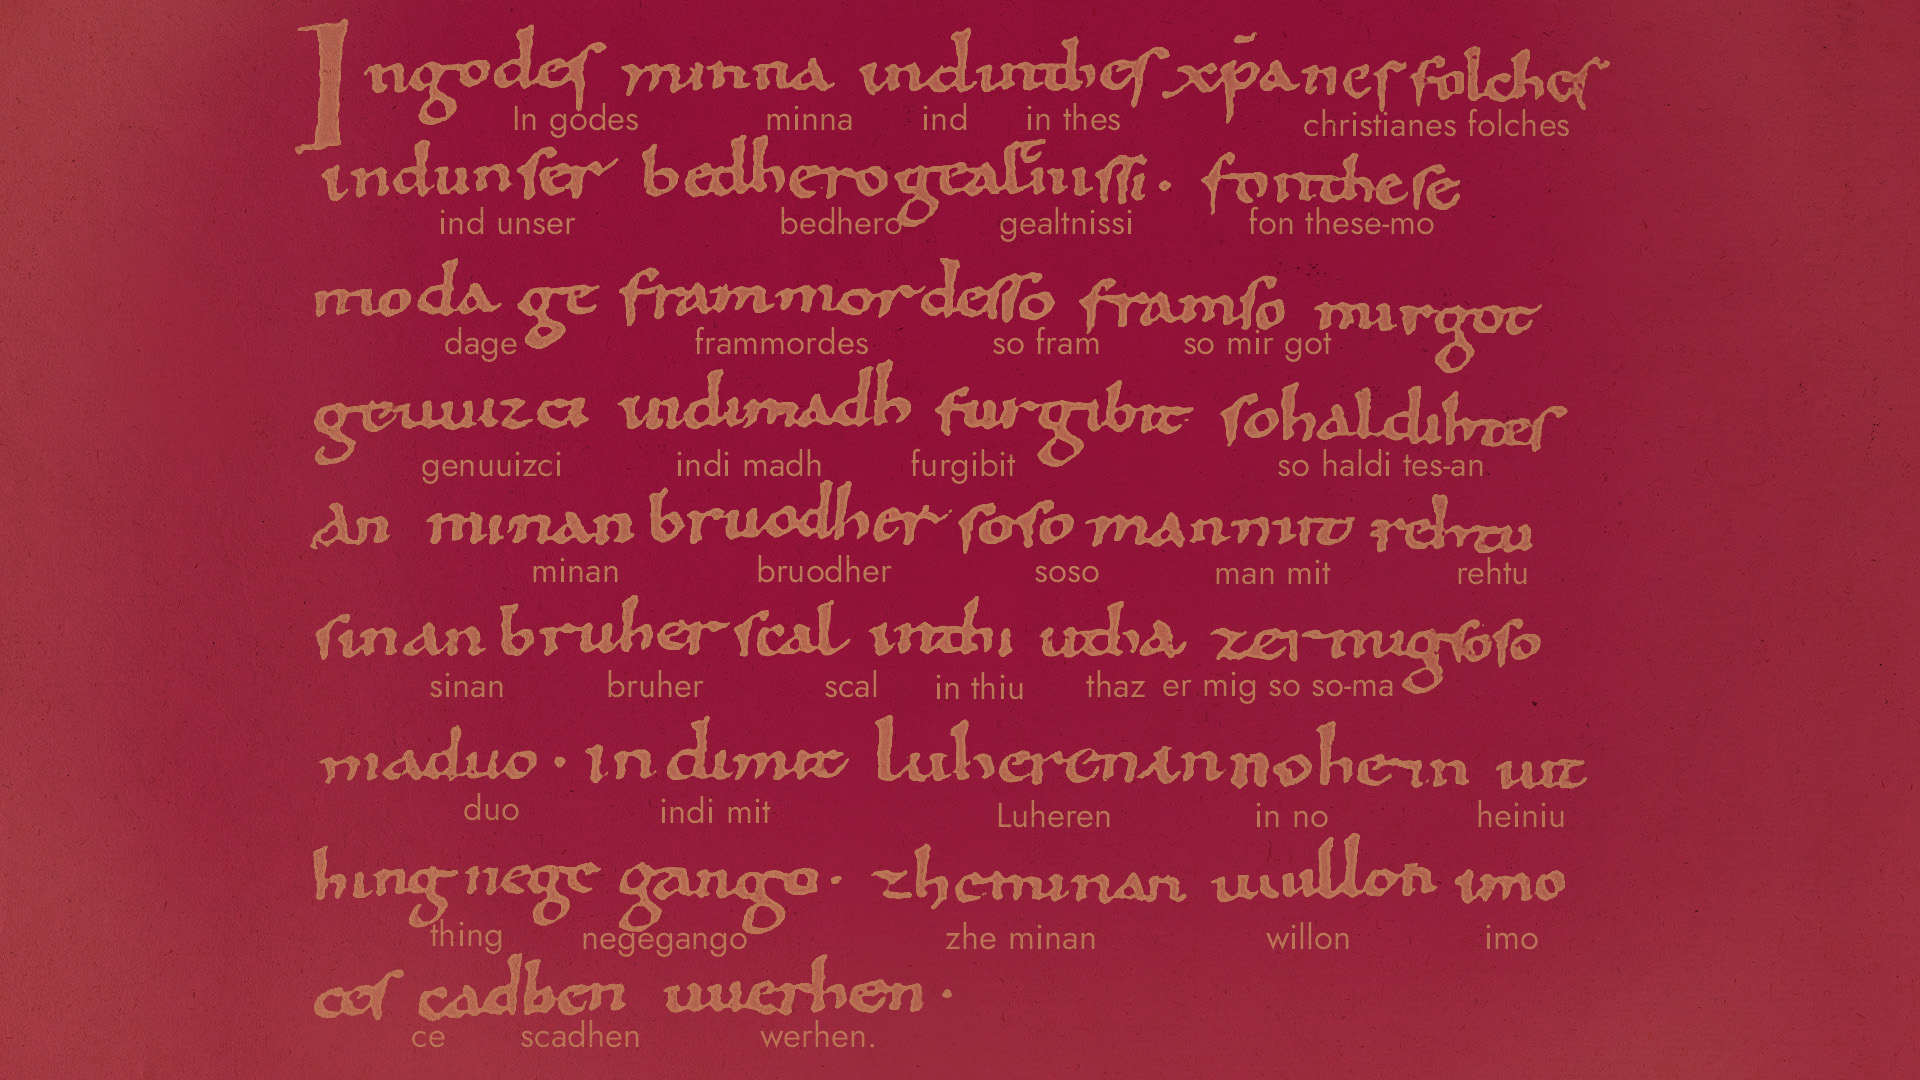 In godes minna indinthes xp̄anes folches
In godes minna ind in thes christianes folches
indunser bedhero gealtnissi. fonthese
ind unser bedhero gealtnissi fon these-mo
moda ge frammordesso framso mirgot
dage frammordes so fram so mir got
geuuizci indimadh furgibit sohaldihtes
genuuizci indi madh furgibit so haldi tes-an
an minan bruodher soso manmit rehtu
minan bruodher soso man mit rehtu
sinan bruher scal inthi utha zermigsoso
sinan bruher scal in thiu thaz er mig so so-ma
maduo · indimit luheren innohein iut
duo indi mit Luheren in no heiniu
hing nege gango · zheminan uuillon imo
thing negegango zhe minan willon imo
ces cadhen uuerhen ·
ce scadhen werhen.